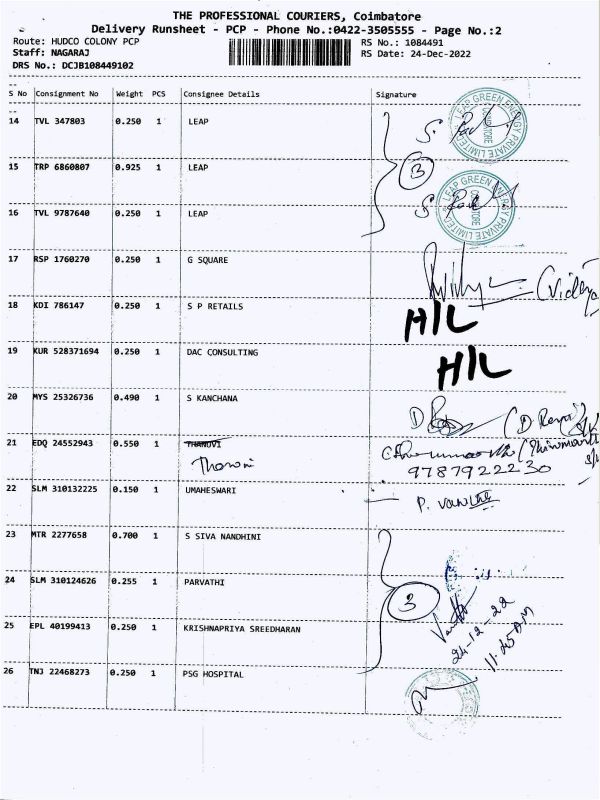 THE PROFESSIONAL COURIERS, Coimbatore
Delivery Runsheet - PCP - Phone No.:0422-3505555 - Page No.:2
Route: HUDCO COLONY PCP RS No.: 1084491
Staff: NAGARAJ RS Date: 24-Dec-2022
DRS No.: DCJB108449102
S No Consignment No Weight PCS Consignee Details Signature
14 TVL 347803 0.250 1 LEAP
LEAP GREEN ENERGY PRIVATE LIMITED
COIMBATORE
15 TRP 6860807 0.925 1 LEAP
3
16 TVL 9787640 0.250 1 LEAP
LEAP GREEN ENERGY PRIVATE LIMITED
17 RSP 1760270 0.250 1 G SQUARE
(Vidhya
18 KDI 786147 0.250 1 S P RETAILS H/L
19 KUR 528371694 0.250 1 DAC CONSULTING H/L
20 MYS 25326736 0.490 1 S KANCHANA
21 EDQ 24552943 0.550 1 THANUVI
9787922230
22 SLM 310132225 0.150 1 UMAHESWARI
23 MTR 2277658 0.700 1 S SIVA NANDHINI
24 SLM 310124626 0.255 1 PARVATHI
3
24-12-22
11:45 AM
25 EPL 40199413 0.250 1 KRISHNAPRIYA SREEDHARAN
26 TNJ 22468273 0.250 1 PSG HOSPITAL